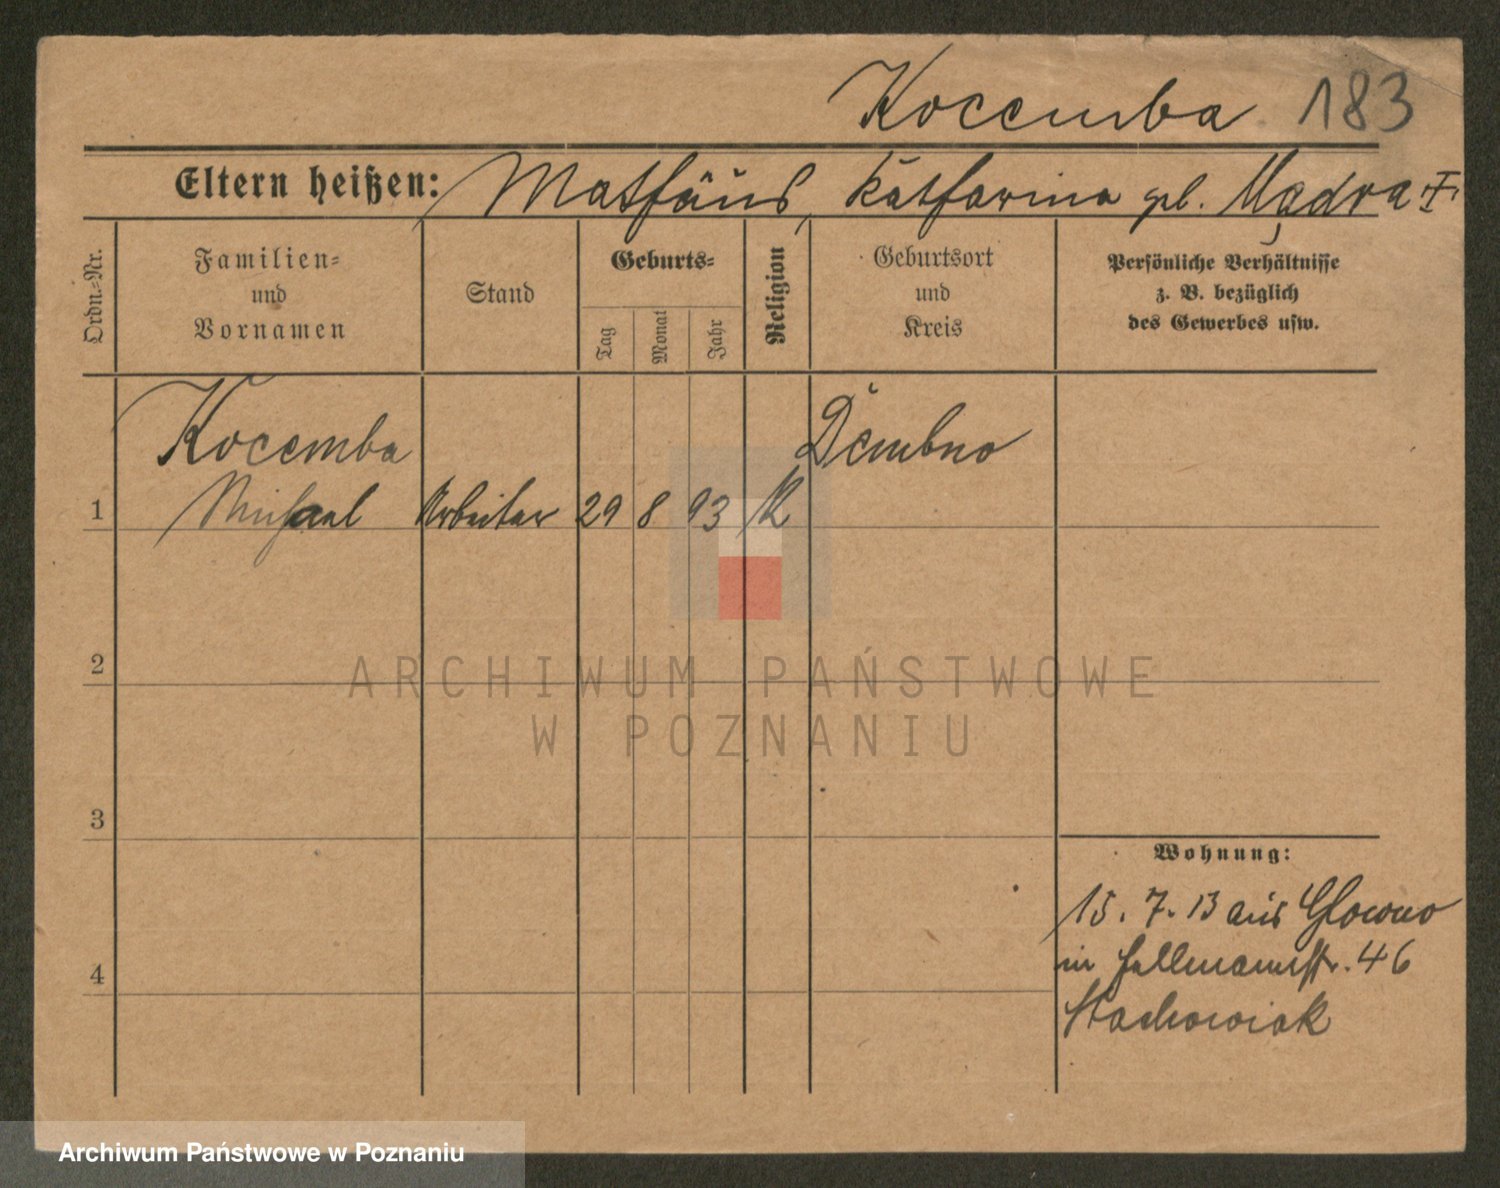 Kocemba 183
Eltern heißen: Mathäus, Katharina geb. Mądra
Ordn.-Nr.
Familien-
und
Vornamen
Stand
Geburts-
Tag
Monat
Jahr
Religion
Geburtsort
und
Kreis
Persönliche Verhältnisse
z. B. bezüglich
des Gewerbes usw.
Kocemba Dembno
1 Michael Arbeiter 29 8 93 K
2
3
4
Wohnung:
15. 7. 13 aus Glowno
in Hellmannstr. 46
Stachowiak
ARCHIWUM PAŃSTWOWE
W POZNANIU
Archiwum Państwowe w Poznaniu